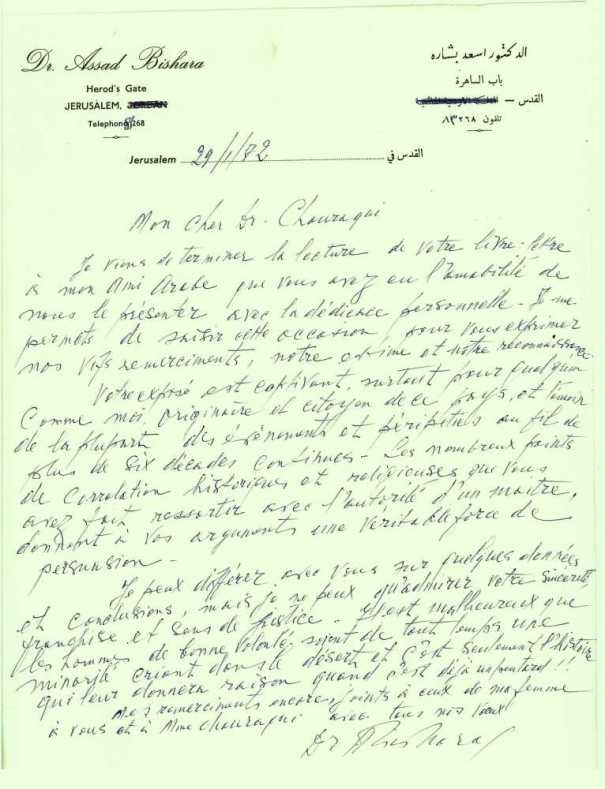 Dr. Assad Bishara
Herod's Gate
JERUSALEM, JORDAN
Telephone 268
الدكتور اسعد بشاره
باب الساهرة
القدس –
تلفون ٨٣٢٦٨
Jerusalem 29/1/82 القدس في
Mon cher Dr. Chouraqui
Je viens de terminer la lecture de votre livre: lettre
à mon Ami Arabe que vous avez eu l'amabilité de
nous le présenter avec la dédicace personnelle. Je me
permets de saisir cette occasion pour vous exprimer
nos vifs remerciments, notre estime et notre reconnaissance
Votre exposé est captivant, surtout pour quelqu'un
comme moi, originaire et citoyen de ce pays, et témoin
de la plupart des événements et péripéties au fil de
plus de six décades continues - Les nombreux points
de corrolation historiques et religieuses que vous
avez fait ressortir avec l'autorité d'un maitre,
donnent à vos arguments une véritable force de
persuasion -
Je peux différer avec vous sur quelques données
et conclusions, mais je ne peux qu'admirer votre sincerité,
franchise et sens de justice - Il est malheureux que
les hommes de bonne volonté soient de tout temps une
minorité criant dans le désert et c'est seulement l'histoire
qui leur donnera raison quand c'est déjà un peu tard!!
Mes remerciments encore, joints à ceux de ma femme
à vous et à Mme Chouraqui avec tous nos vœux
Dr Bishara